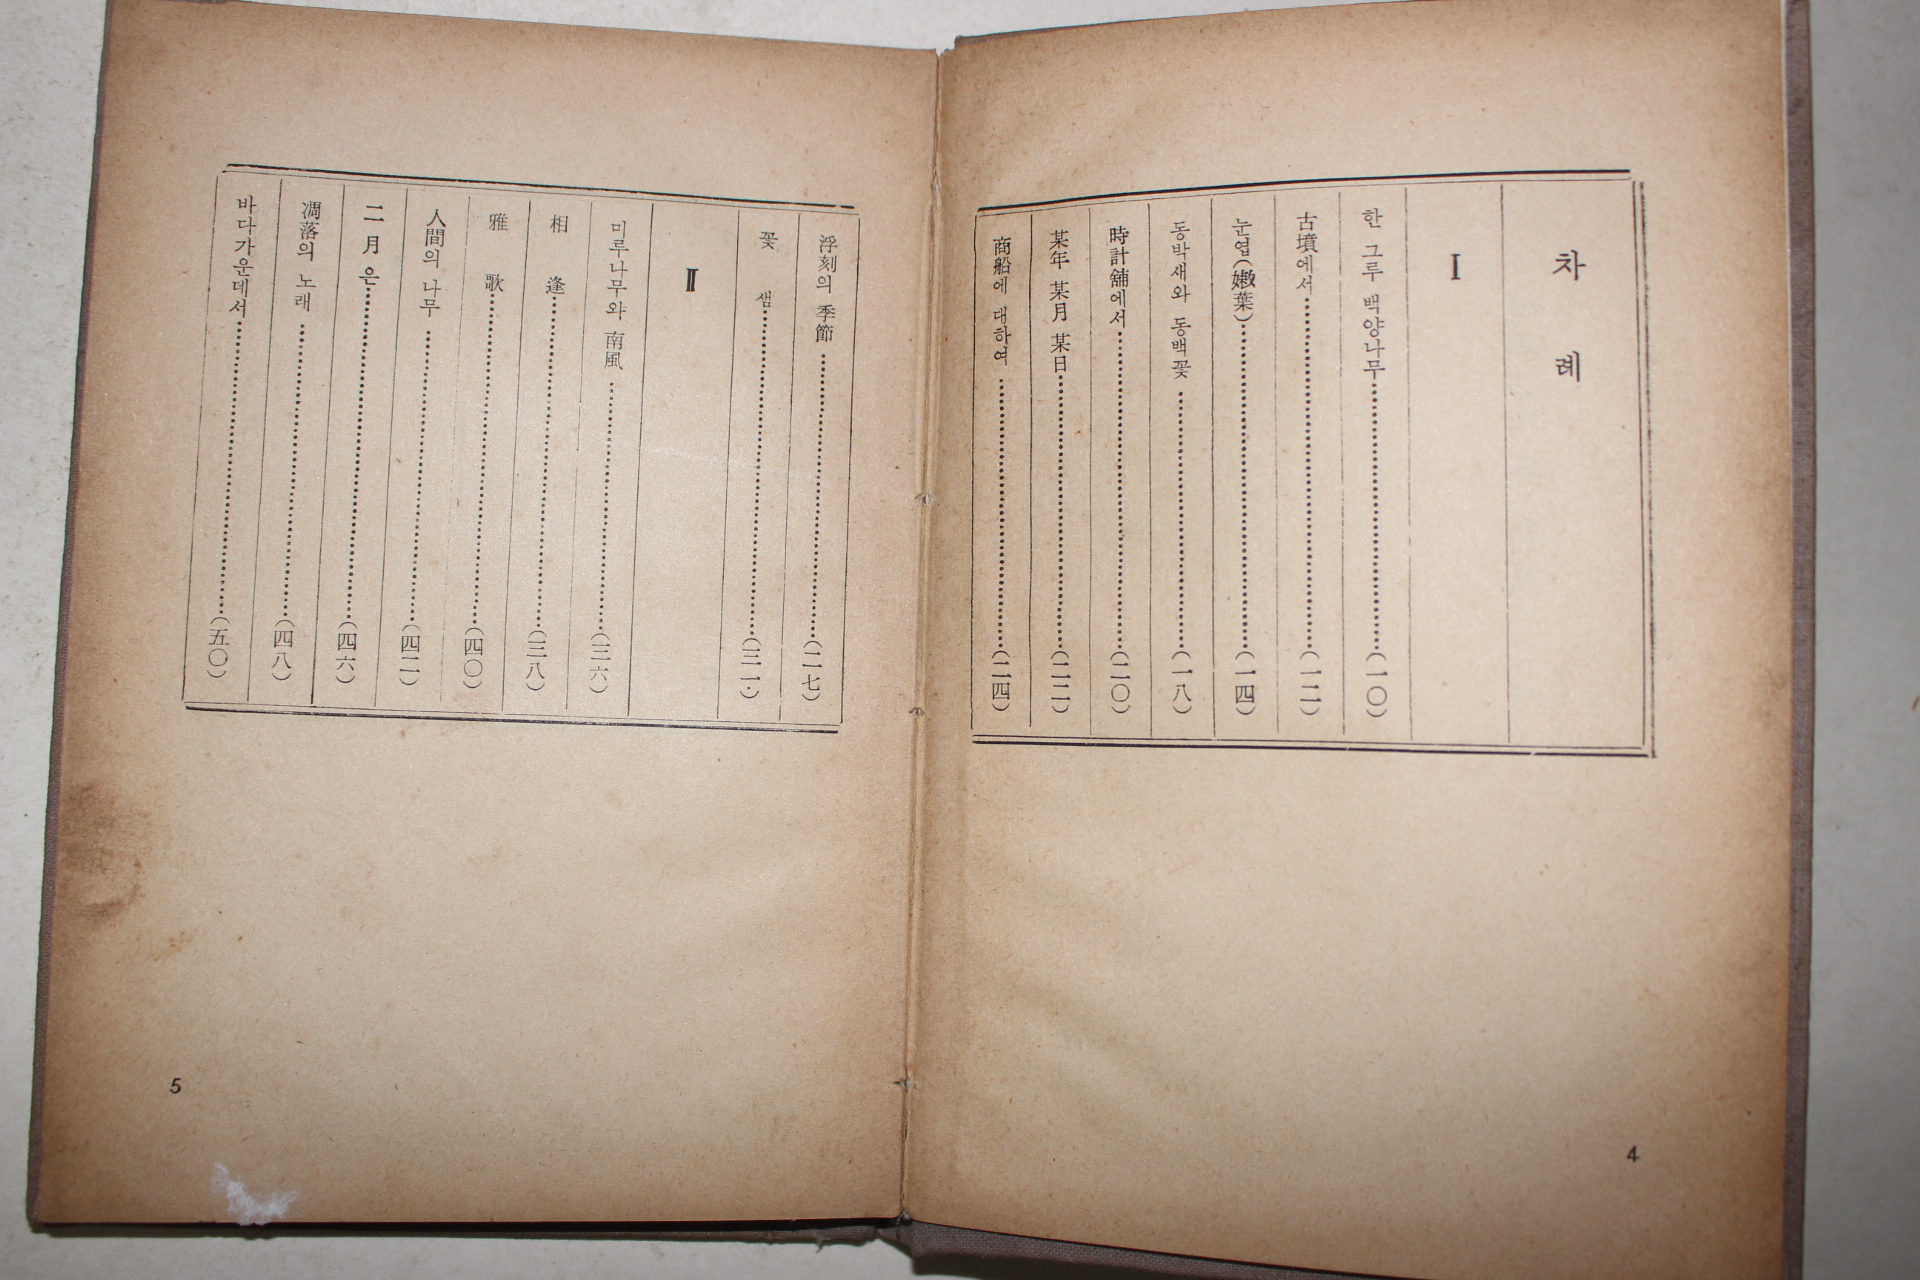 차 례
I
한 그루 백양나무……(一〇)
古墳에서……(一二)
눈엽(嫩葉)……(一四)
동박새와 동백꽃……(一八)
時計舖에서……(二〇)
某年 某月 某日……(二二)
商船에 대하여……(二四)
4
浮刻의 季節……(二七)
꽃 샘……(三二·)
II
미루나무와 南風……(三六)
相 逢……(三八)
雅 歌……(四〇)
人間의 나무……(四二)
二月은……(四六)
凋落의 노래……(四八)
바다가운데서……(五〇)
5